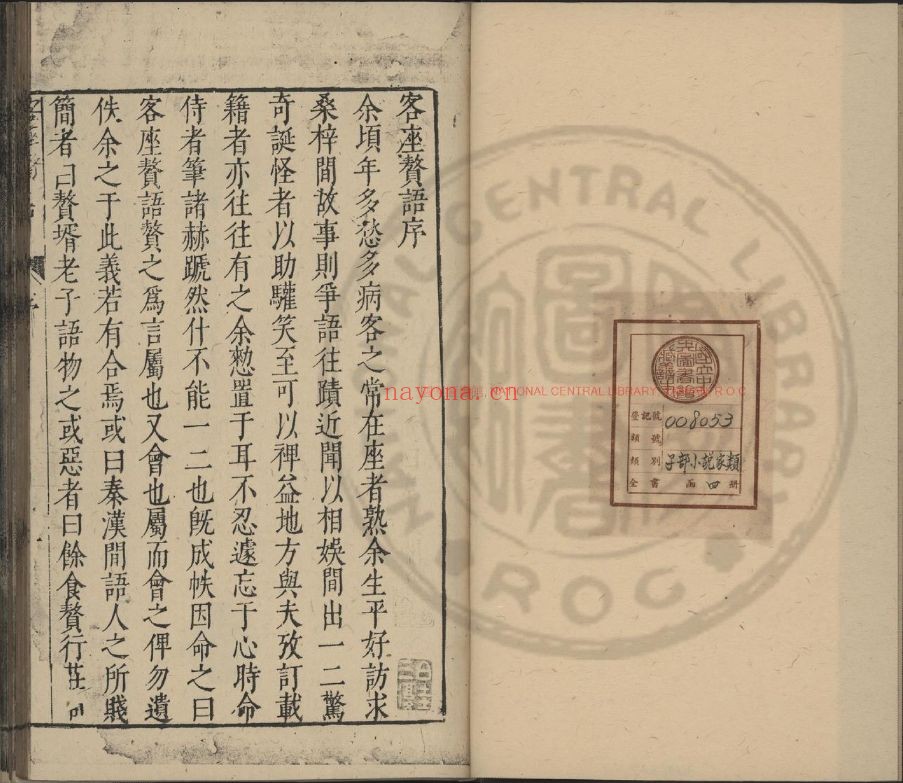 客座贅語序
余頃年多愁多病客之常在座者熟余生平好訪求
桑梓間故事則爭語往蹟近聞以相娛間出一二驚
奇誕怪者以助驩笑至可以裨益地方與夫攷訂載
籍者亦往往有之余愸置于耳不忍遽忘于心時命
侍者筆諸赫蹏然什不能一二也旣成帙因命之曰
客座贅語贅之爲言屬也又會也屬而會之俾勿遺
佚余之于此義若有合焉或曰秦漢間語人之所賤
簡者曰贅壻老子語物之或惡者曰餘食贅行莊
nayona.cn
NATIONAL CENTRAL LIBRARY
R O C
NATIONAL CENTRAL LIBRARY
R.O.C.
登記號 008053
類號
類別 子部小説家類
全書 函 四 册